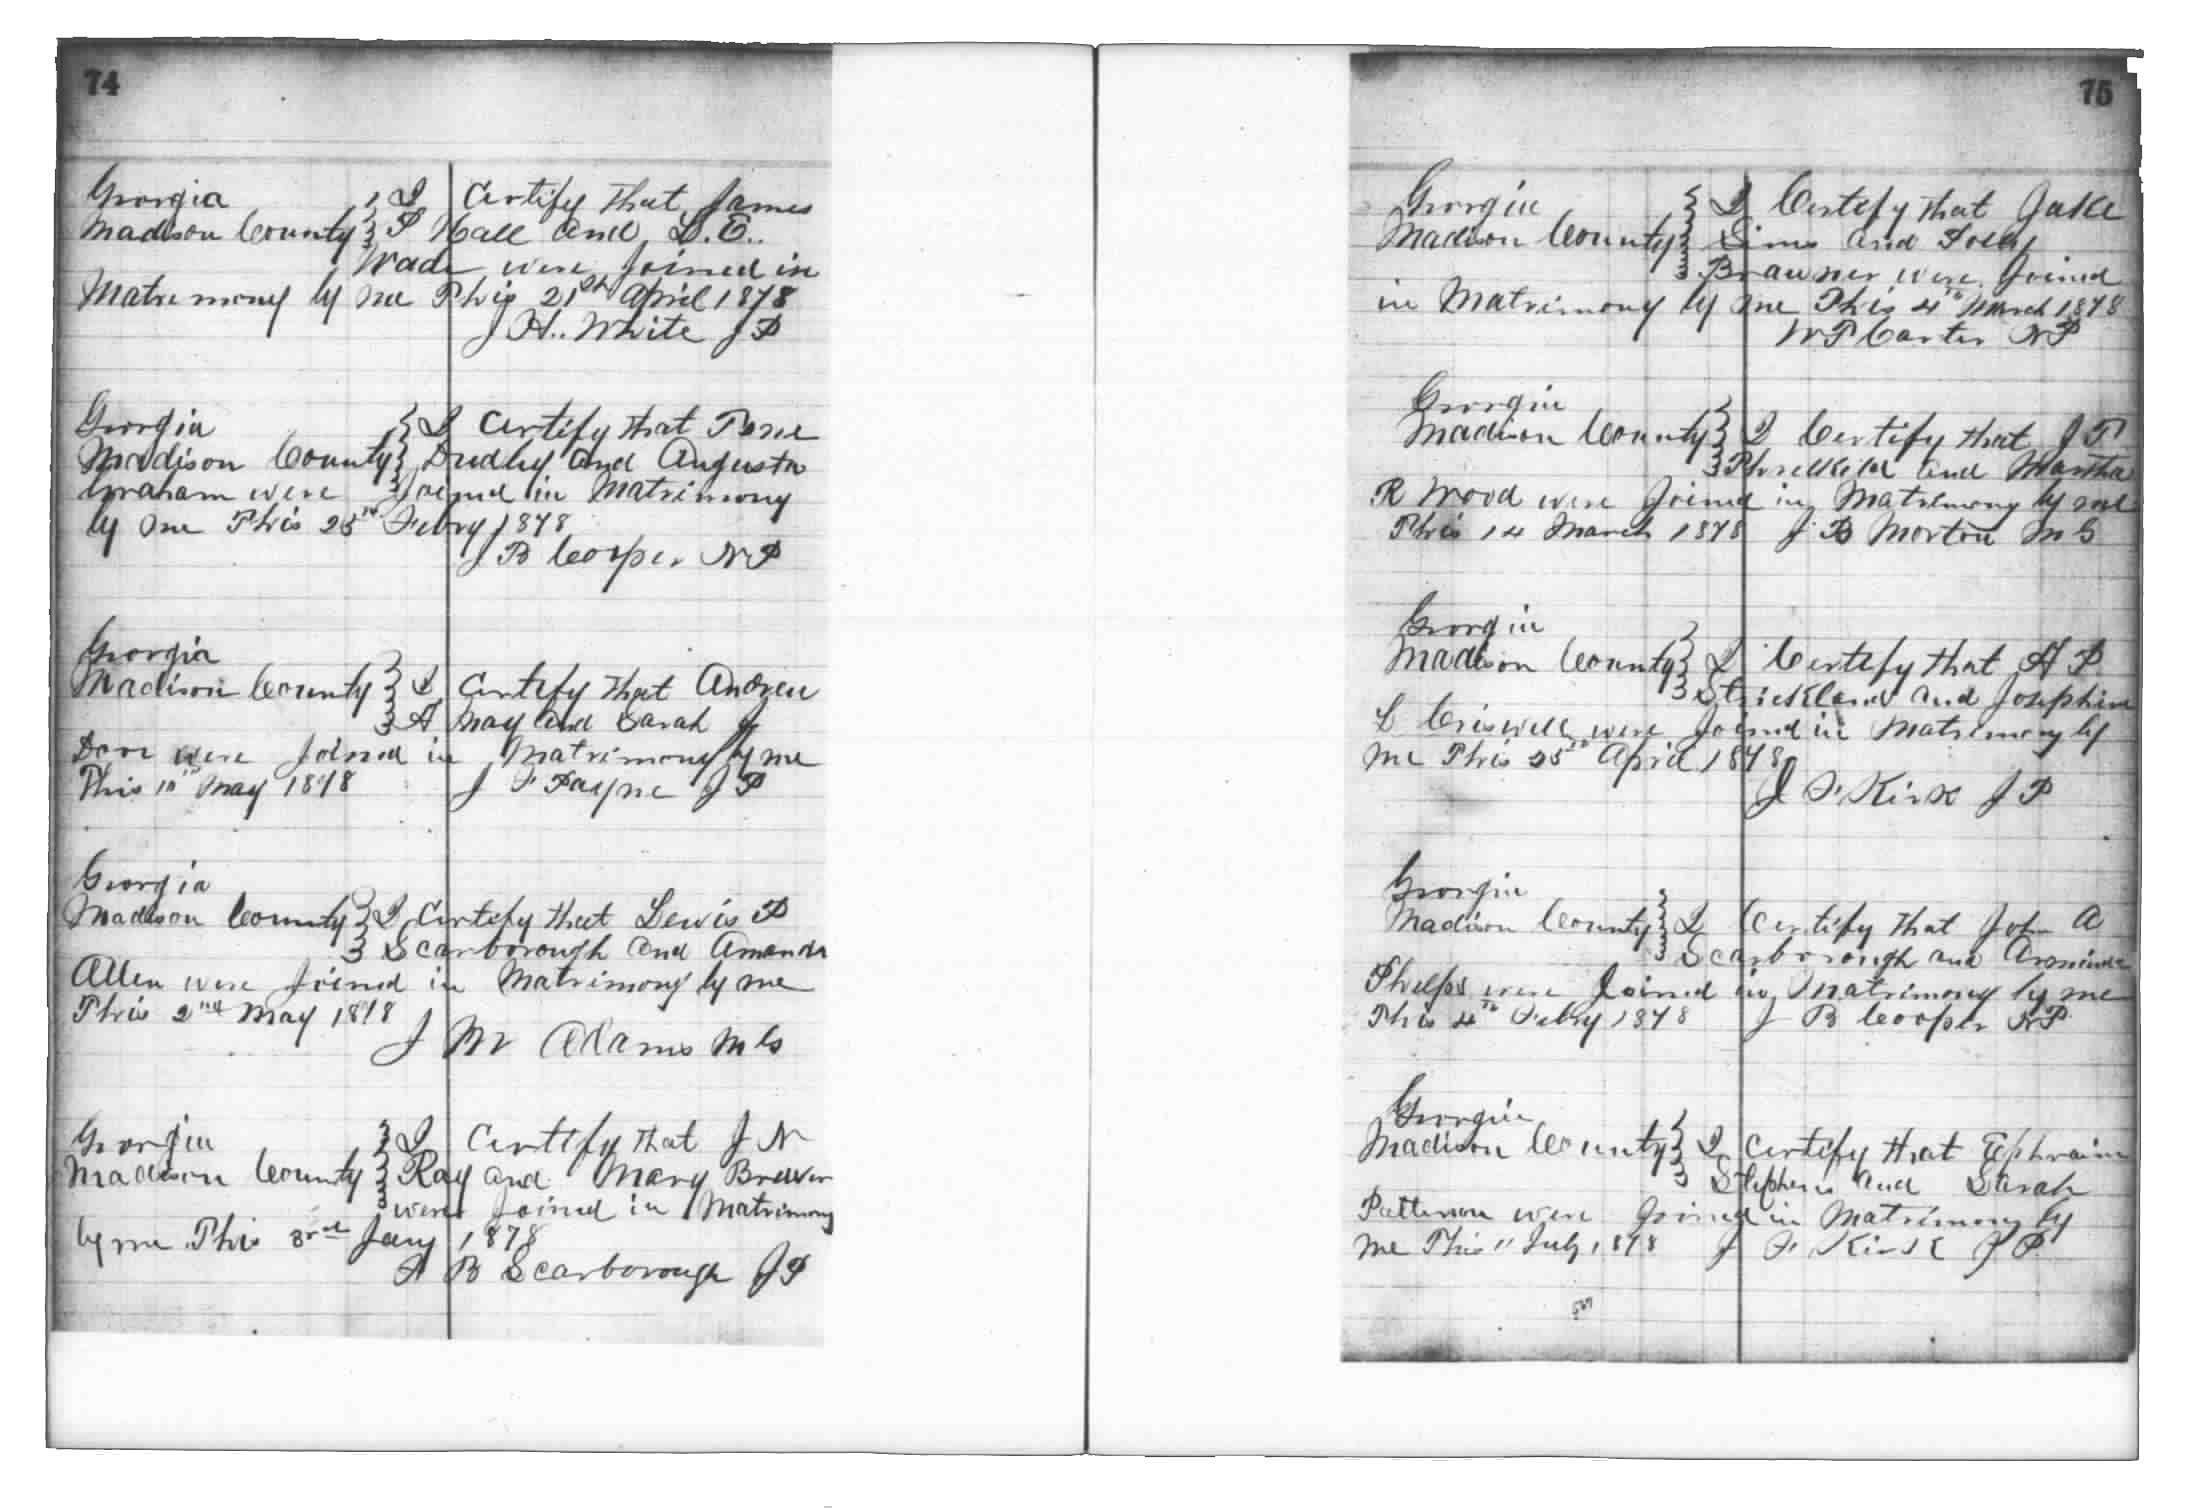 74
Georgia } I Certify that James
Madison County } P Hall and L. E.
Wade were Joined in
Matrimony by me This 21st April 1878
J H. White J P
Georgia } I Certify that
Madison County } Dudley and Augusta
Graham were Joined in Matrimony
by me This 25th Febry 1878
J B Cooper N P
Georgia
Madison County } I Certify that Andrew
A May and Sarah J
Dove were Joined in Matrimony by me
This 10th May 1878 J F Payne J P
Georgia
Madison County } I Certify that Lewis P
Scarborough and Amanda
Allen were Joined in Matrimony by me
This 2nd May 1878
J M Adams M G
Georgia } I Certify that J N
Madison County } Ray and Mary Brewer
were Joined in Matrimony
by me This 3rd Jany 1878
A B Scarborough J P
75
Georgia } I Certify that Jake
Madison County } Sims and Polly
Brawner were Joined
in Matrimony by me This 4th March 1878
W P Carter N P
Georgia
Madison County } I Certify that J T
Threlkeld and Martha
R Wood were Joined in Matrimony by me
This 14 March 1878 J B Morton M G
Georgia
Madison County } I Certify that A P
Strickland and Josephine
C Criswell were Joined in Matrimony by
me This 25th April 1878
J F Kirk J P
Georgia
Madison County } I Certify that John A
Scarborough and Arminda
Phelps were Joined in Matrimony by me
This 4th Febry 1878 J B Cooper N P
Georgia
Madison County } I Certify that Ephraim
Stephens and Sarah
Patterson were Joined in Matrimony by
me This 11 July 1878 J F Kirk J P